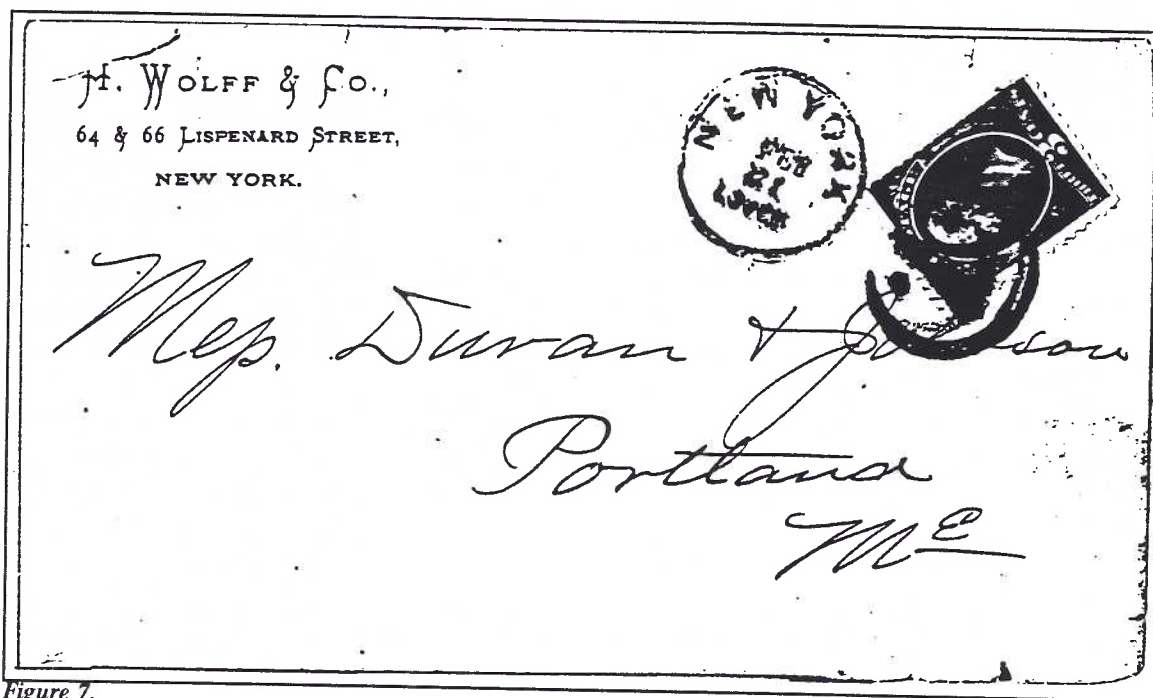 H. WOLFF & CO.,
64 & 66 LISPENARD STREET,
NEW YORK.
NEW YORK
21
Mess. Duran &
Portland
Me
Figure 7.